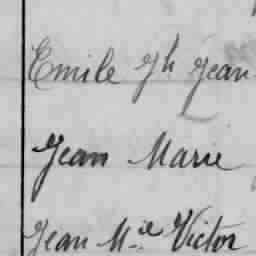 Emile Jh Jean
Jean Marie
Jean M.ie Victor